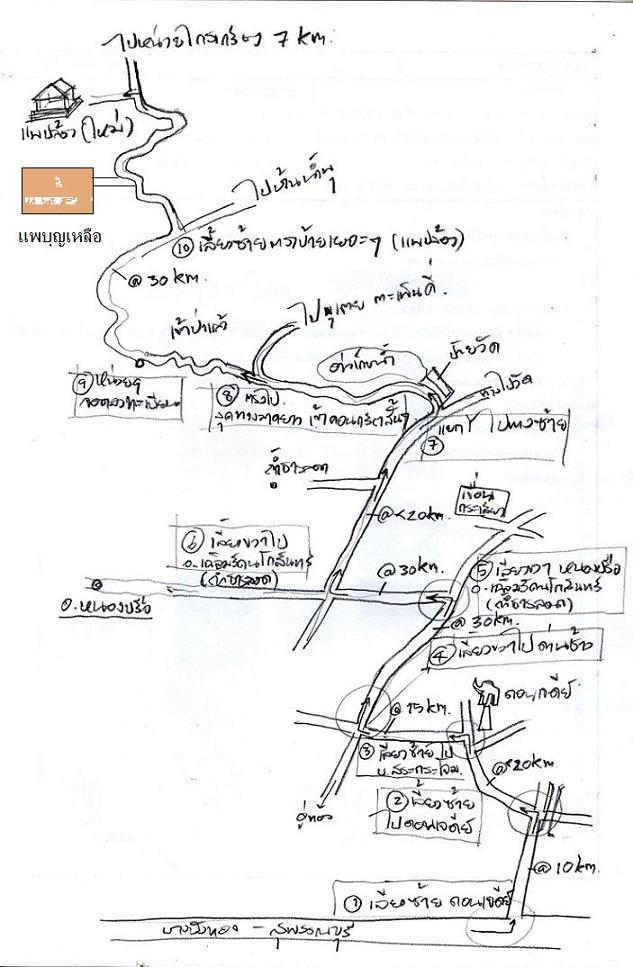 ไปหน่วยไกรเกรียง 7 km.
แพปล้อง (ใหม่)
แพบุญเหลือ
ไป
⑩ เลี้ยวซ้าย (แพปล้อง)
@ 30 km.
เข้าป่าแล้ว
ไปพุเตย ตะเพินคี่
อ่างเก็บน้ำ
ป้ายวัด
ทางไปวัด
⑨ หน่วยฯ
⑧ ตรงไป
สุดทางลาดยาง เข้าคอนกรีตสั้นๆ
แยก Y ไปทางซ้าย
⑦
ถ้ำธารลอด
@ <20 km.
เขื่อน
กระเสียว
⑥ เลี้ยวขวาไป
อ.เฉลิมรัตนโกสินทร์
(ถ้ำธารลอด)
@ 30 km.
⑤ เลี้ยวขวา หนองปรือ
อ.เฉลิมรัตนโกสินทร์
(ถ้ำธารลอด)
อ.หนองปรือ
@ 30 km.
④ เลี้ยวขวาไปด่านช้าง
ดอนเจดีย์
@ 15 km.
③ เลี้ยวซ้ายไป
บ.สระกระโจม
@ <20 km.
② เลี้ยวซ้าย
ไปดอนเจดีย์
อู่ทอง
@ 10 km.
① เลี้ยวซ้าย ดอนเจดีย์
บางบัวทอง - สุพรรณบุรี